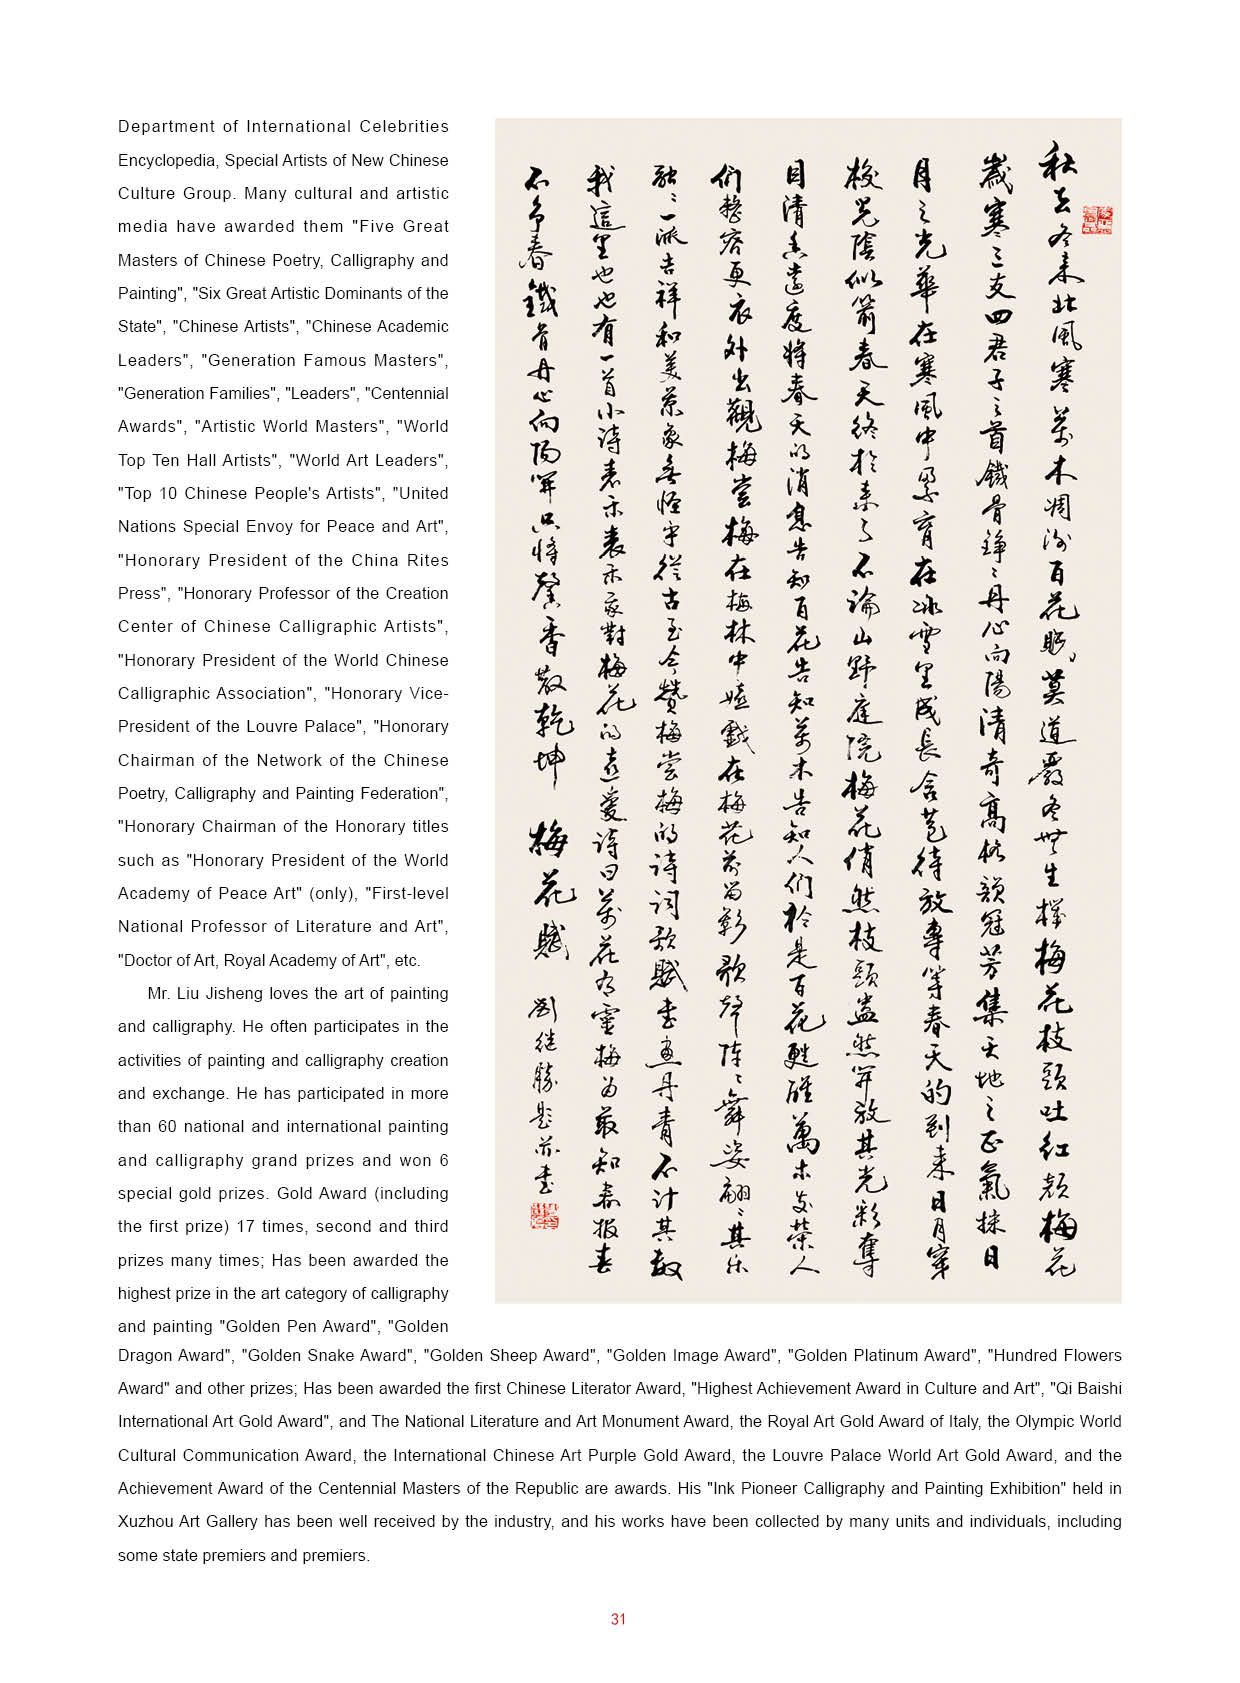 Department of International Celebrities
Encyclopedia, Special Artists of New Chinese
Culture Group. Many cultural and artistic
media have awarded them "Five Great
Masters of Chinese Poetry, Calligraphy and
Painting", "Six Great Artistic Dominants of the
State", "Chinese Artists", "Chinese Academic
Leaders", "Generation Famous Masters",
"Generation Families", "Leaders", "Centennial
Awards", "Artistic World Masters", "World
Top Ten Hall Artists", "World Art Leaders",
"Top 10 Chinese People's Artists", "United
Nations Special Envoy for Peace and Art",
"Honorary President of the China Rites
Press", "Honorary Professor of the Creation
Center of Chinese Calligraphic Artists",
"Honorary President of the World Chinese
Calligraphic Association", "Honorary Vice-
President of the Louvre Palace", "Honorary
Chairman of the Network of the Chinese
Poetry, Calligraphy and Painting Federation",
"Honorary Chairman of the Honorary titles
such as "Honorary President of the World
Academy of Peace Art" (only), "First-level
National Professor of Literature and Art",
"Doctor of Art, Royal Academy of Art", etc.
Mr. Liu Jisheng loves the art of painting
and calligraphy. He often participates in the
activities of painting and calligraphy creation
and exchange. He has participated in more
than 60 national and international painting
and calligraphy grand prizes and won 6
special gold prizes. Gold Award (including
the first prize) 17 times, second and third
prizes many times; Has been awarded the
highest prize in the art category of calligraphy
and painting "Golden Pen Award", "Golden
Dragon Award", "Golden Snake Award", "Golden Sheep Award", "Golden Image Award", "Golden Platinum Award", "Hundred Flowers
Award" and other prizes; Has been awarded the first Chinese Literator Award, "Highest Achievement Award in Culture and Art", "Qi Baishi
International Art Gold Award", and The National Literature and Art Monument Award, the Royal Art Gold Award of Italy, the Olympic World
Cultural Communication Award, the International Chinese Art Purple Gold Award, the Louvre Palace World Art Gold Award, and the
Achievement Award of the Centennial Masters of the Republic are awards. His "Ink Pioneer Calligraphy and Painting Exhibition" held in
Xuzhou Art Gallery has been well received by the industry, and his works have been collected by many units and individuals, including
some state premiers and premiers.
秋去冬来北風寒萬木凋谢百花眠莫道嚴冬無生機梅花枝頭吐红顔梅花
歲寒三友四君子之首鐵骨錚々丹心向陽清奇高格韻冠芳集天地之正氣採日
月之光華在寒風中孕育在冰雪里成長含苞待放專等春天的到来日月穿
梭光陰似箭春天终於来了不論山野庭院梅花俏然枝頭盎然開放其光彩奪
目清香遠度將春天的消息告知百花告知萬木告知人们於是百花甦醒萬木欣荣人
们整容更衣外出觀梅赏梅在梅林中嬉戲在梅花前留影歌聲陣々舞姿翩々其乐
融々一派吉祥和美景象無怪乎從古至今赞梅赏梅的诗词歌賦書畫丹青不计其數
我這里也也有一首小诗表示表示對梅花的喜爱诗曰萬花有靈梅为最知春报春
不争春鐵骨丹心向陽開只將馨香散乾坤 梅花賦 劉继勝題并書
31